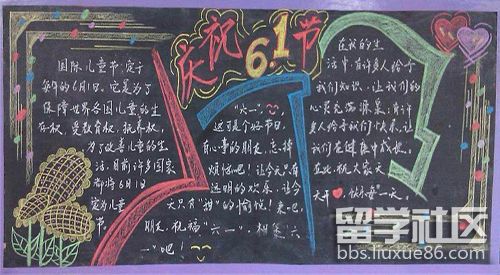 庆祝6.1节
国际儿童节,定于
每年的6月1日。它是为了
保障世界各国儿童的生
存权、受教育权、抚养权,
为了改善儿童的生
活,目前许多国家
都将6月1日
定为儿童
节。
“六一”,
这可是个好节日,
有心事的朋友,忘掉
烦恼吧!让今天只有
透明的欢乐,让今
天只有“甜”的愉悦!来吧,
朋友,祝福“六一”,相逢“六
一”吧!
在我的生
活中,有许多人给予
我们知识,让我们的
心灵充满源泉;有许
多人给予我们快乐,让
我们在健康中成长。
在此,祝大家天
天开❤,快乐每一天。
留学社区
bbs.liuxue86.com